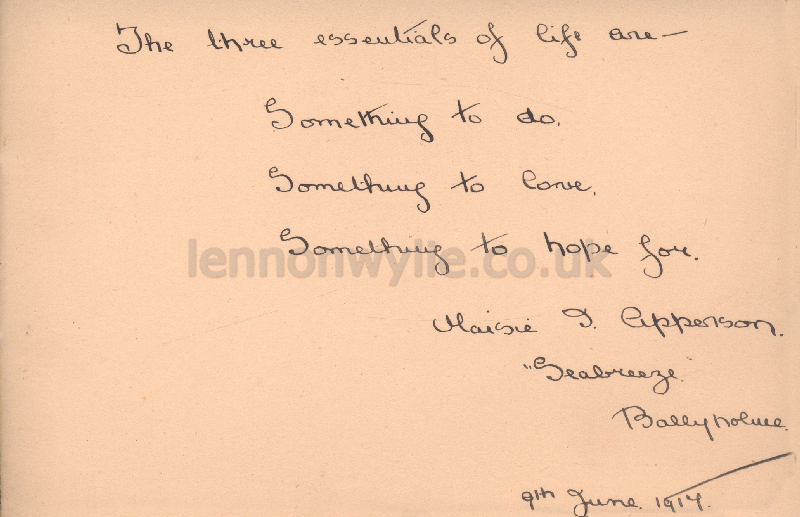 The three essentials of life are—
Something to do.
Something to love.
Something to hope for.
lennonwylie.co.uk
Maisie I. Apperson.
"Seabreeze"
Ballyholme.
9th June 1917.